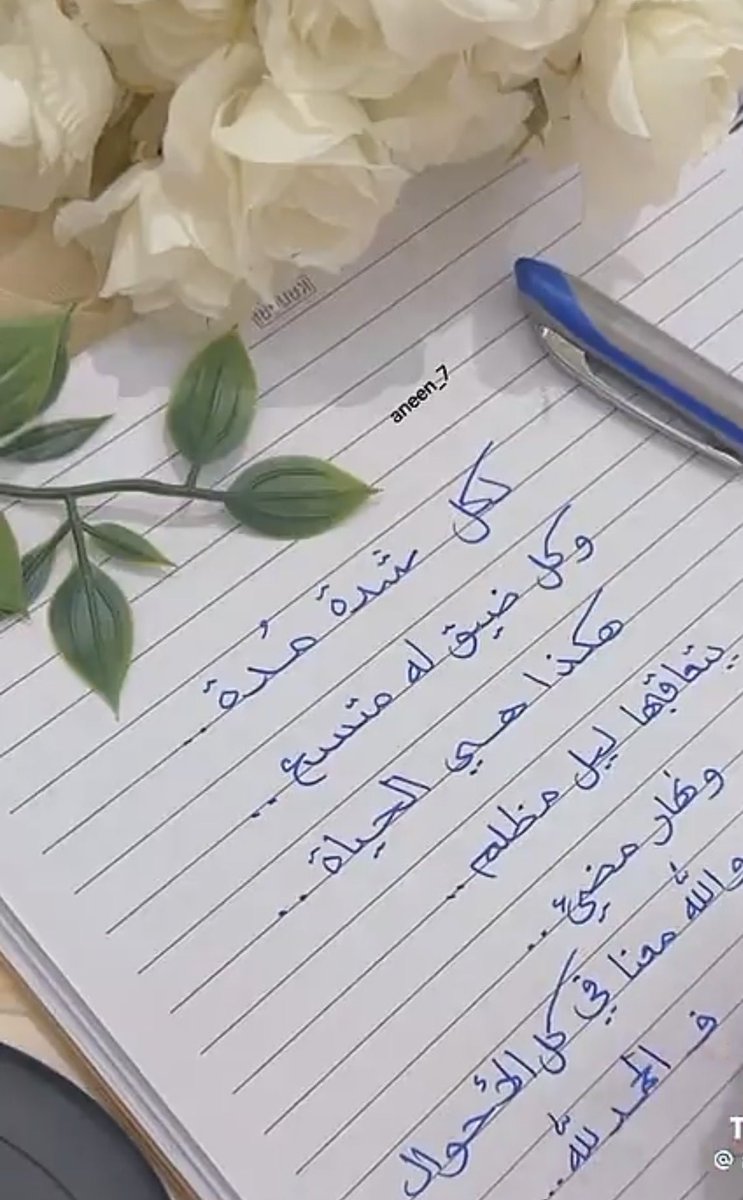 aneen_7
لكل شدة مُدة ..
وكل ضيق له متسع ..
هكذا هي الحياة ..
يتعاقبها ليل مظلم ..
ونهار مضيئ ..
والله معنا في كل الأحوال
ف الحمد لله ..
@